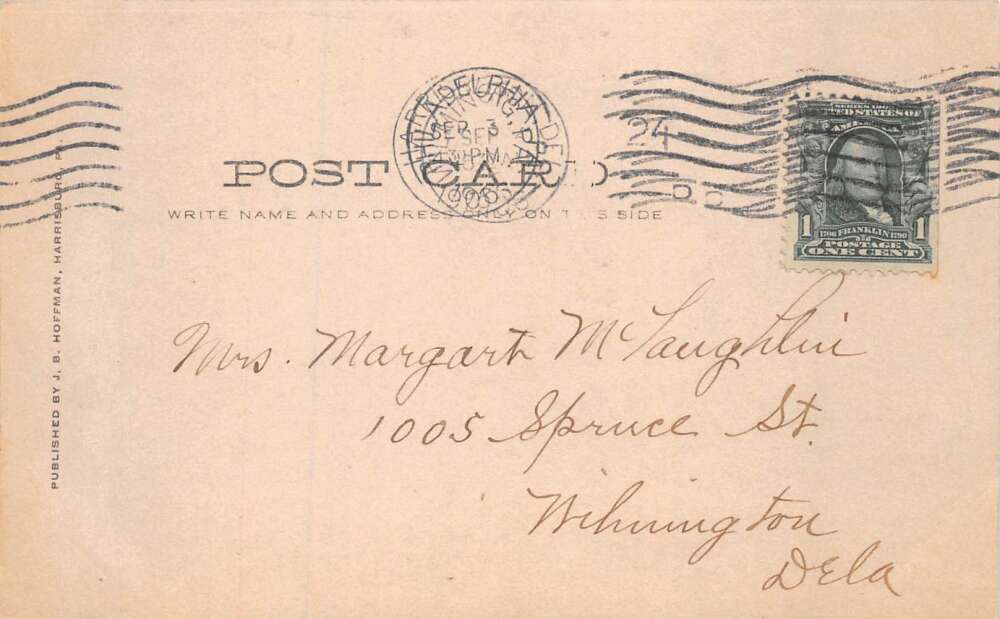 SEP 3
POST CARD
WRITE NAME AND ADDRESS ONLY ON THIS SIDE
24
SERIES 1902
UNITED STATES OF
AMERICA
1 1
1706 FRANKLIN 1790
POSTAGE
ONE CENT
PUBLISHED BY J. B. HOFFMAN, HARRISBURG, PA.
Mrs. Margart McLaughlin
1005 Spruce St.
Wilmington
Dela